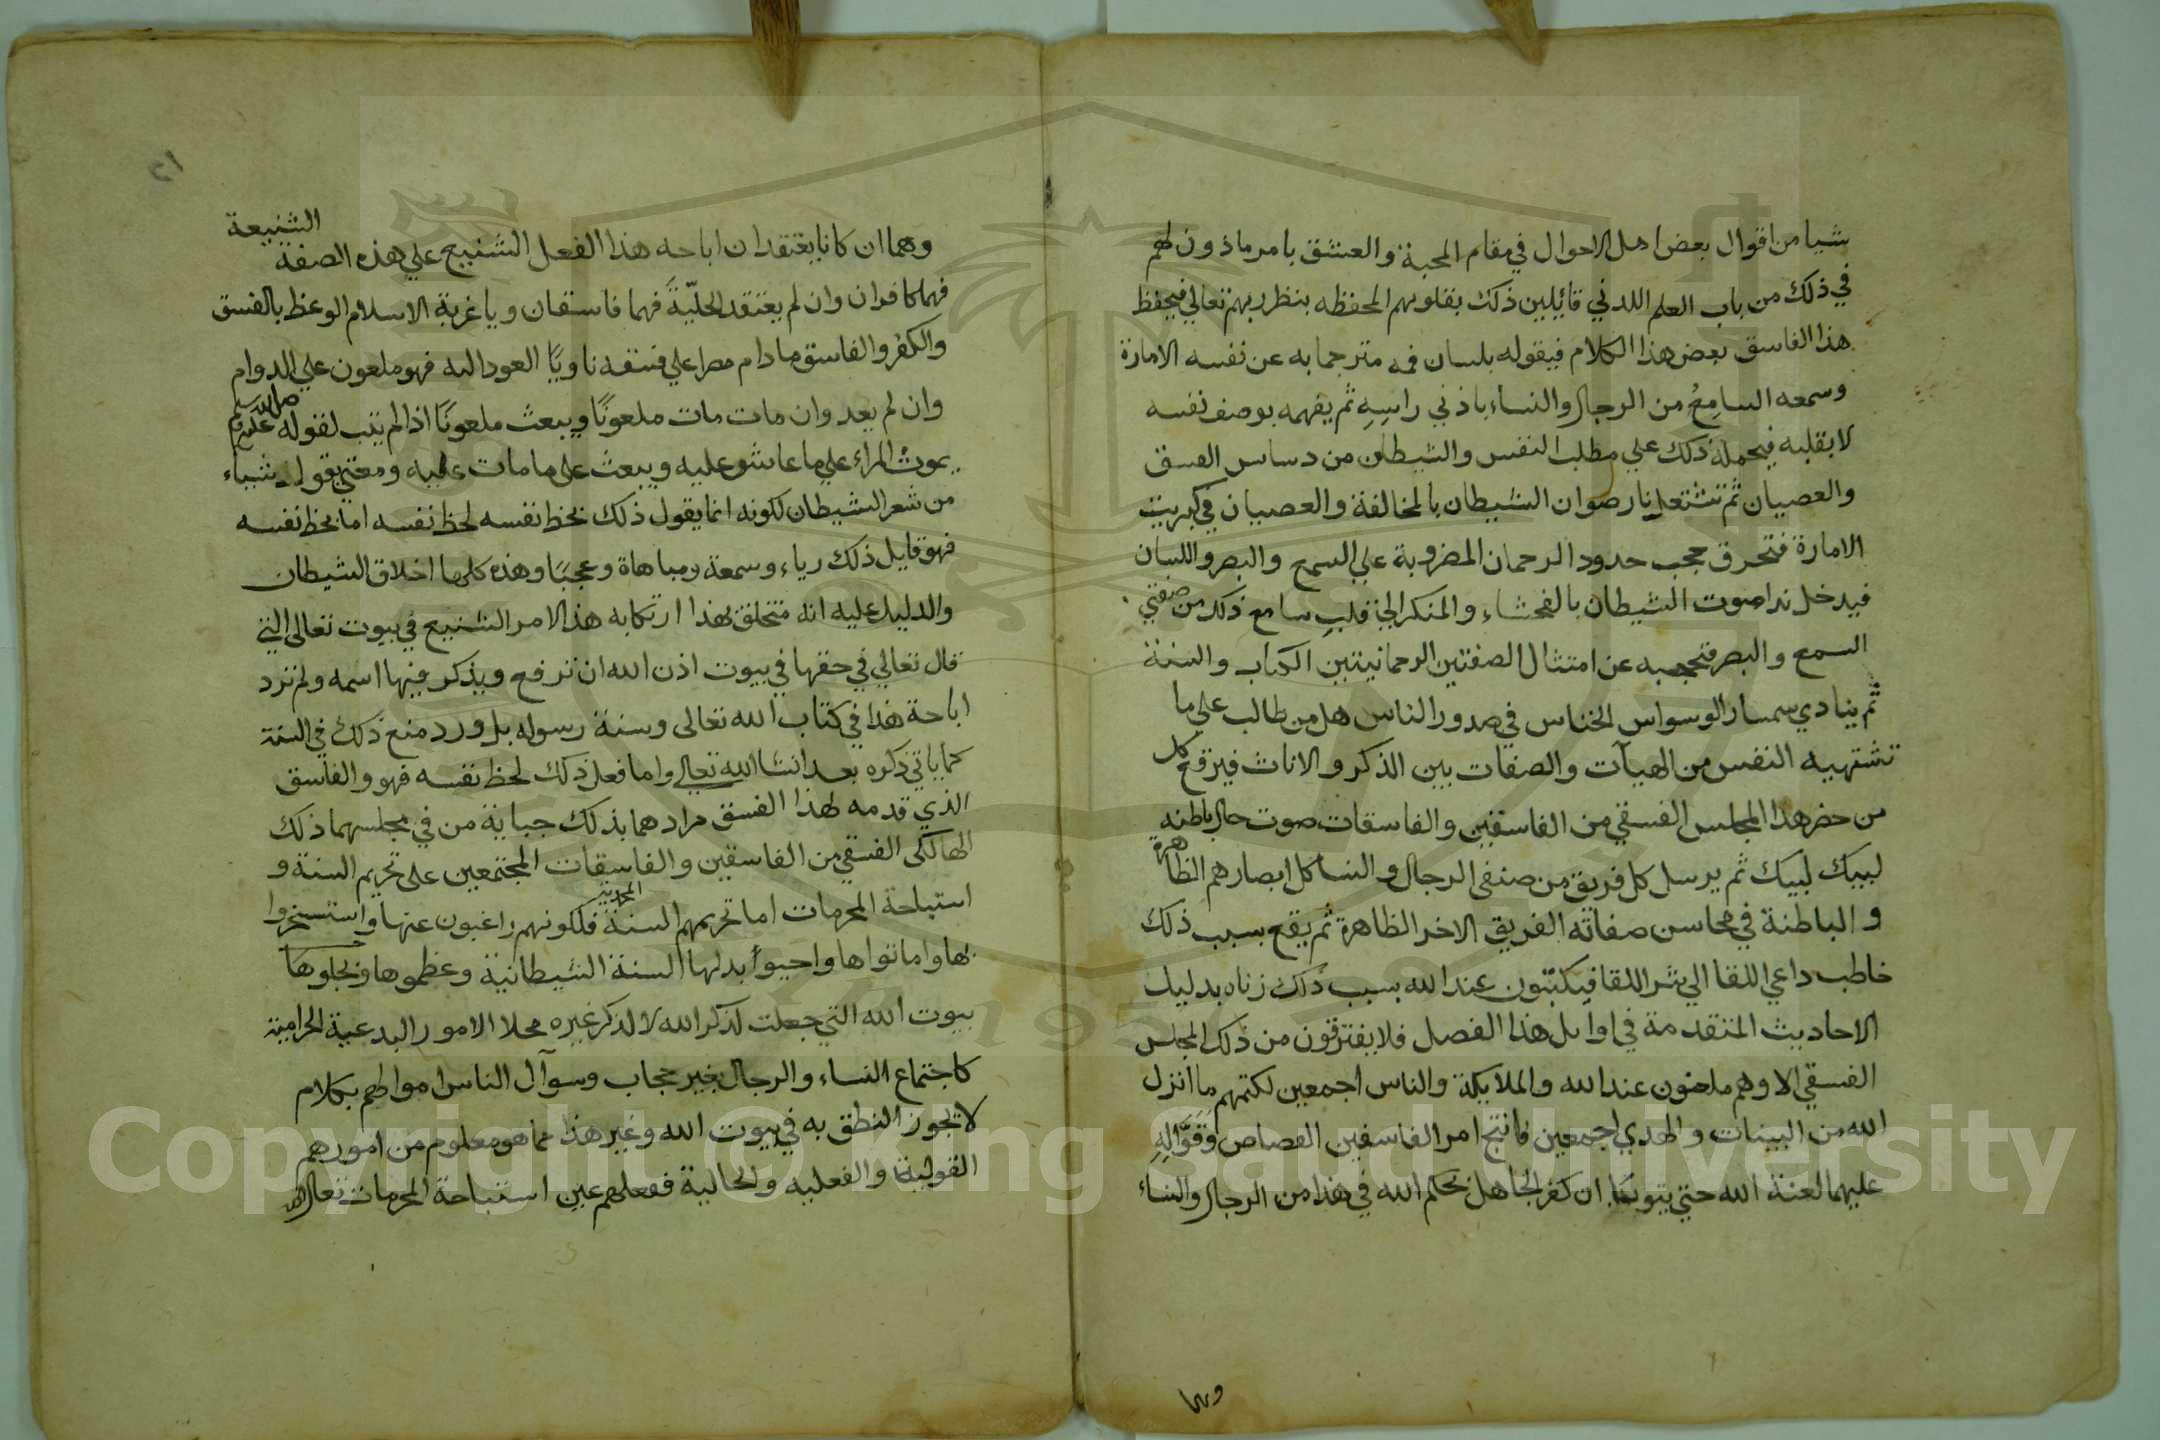 شيا من اقوال بعض اهل الاحوال في مقام المحبة والعشق بامر ماذون لهم
في ذلك من باب العلم اللدني قايلين ذلك بقلوبهم المحفظه بنظر ربهم تعالي فيحفظ
هذا الفاسق بعض هذا الكلام فيقوله بلسان فمه مترجما به عن نفسه الامارة
وسمعه السامع من الرجال والنساء باذني راسه ثم يفهمه بوصف نفسه
لا بقلبه فيحمله ذلك علي مطلب النفس والشيطان من دساس الفسق
والعصيان ثم تشتعل نار صوان الشيطان بالمخالفة والعصيان في كبريت
الامارة فتحرق حجب حدود الرحمان المضروبة علي السمع والبصر واللسان
فيدخل ندا صوت الشيطان بالفحشاء والمنكر الي قلب سامع ذلك من صفتي
السمع والبصر فتحجبه عن امتثال الصفتين الرحمانيتين الكتاب والسنة
ثم ينادي سمسار الوسواس الخناس في صدور الناس هل من طالب علي ما
تشتهيه النفس من الهيآت والصفات بين الذكر والاناث فيرفع كل
من حضر هذا المجلس الفسقي من الفاسقين والفاسقات صوت حال باطنه
لبيك لبيك ثم يرسل كل فريق من صنفي الرجال والنسا كل ابصارهم الظاهرة
والباطنة في محاسن صفاته الفريق الاخر الظاهرة ثم يقع بسبب ذلك
خاطب داعي اللقا الي شر اللقا فيكتبون عند الله بسبب ذلك زناه بدليل
الاحاديث المتقدمة في اوايل هذا الفصل فلا يفترقون من ذلك المجلس
الفسقي الا وهم ملعنون عند الله والملايكة والناس اجمعين لكتمهم ما انزل
الله من البينات والهدي اجمعين فانتج امر الفاسقين القصاص وقوّاله
عليهما لعنة الله حتي يتوبا ان كفر الجاهل بحكم الله في هذا من الرجال والنساء
وهما
٢١
وهما ان كانا يعتقدان اباحه هذا الفعل الشنيع علي هذه الصفة الشنيعة
فهما كافران وان لم يعتقد الحليّة فهما فاسقان ويا غربة الاسلام الوعظ بالفسق
والكفر والفاسق مادام مصرا علي فسقه ناويًا العود اليه فهو ملعون علي الدوام
وان لم يعد وان مات مات ملعونًا ويبعث ملعونًا اذا لم يتب لقوله صلى الله عليه وسلم
يموت المراء علي ما عاش عليه ويبعث علي ما مات عليه ومعني يقول شياء
من شعر الشيطان لكونه انما يقول ذلك بحظ نفسه لحظ نفسه اما بحظ نفسه
فهو قايل ذلك رياء وسمعة ومباهاة وعجبًا وهذه كلها اخلاق الشيطان
والدليل عليه انه متخلق بهذا ارتكابه هذ الامر الشنيع في بيوت تعالي التي
قال تعالي في حقها في بيوت اذن الله ان ترفع ويذكر فيها اسمه ولم ترد
اباحة هذا في كتاب الله تعالى وسنة رسوله بل ورد منع ذلك في السنة
كما ياتي ذكره بعد انشا الله تعالي واما فعل ذلك لحظ نفسه فهو والفاسق
الذي قدمه لهذا الفسق مرادهما بذلك جباية من في مجلسهما ذلك
الهالكى الفسقي من الفاسقين والفاسقات المجتمعين على تحريم السنة و
استباحة المحرمات اما تحريمهم السنة المحمدية فلكونهم راغبون عنها واستسخروا
بها واماتواها واحيوا بدلها السنة الشيطانية وعظموها ودخلوها
بيوت الله التي جعلت لذكر الله لا لذكر غيره محلا الامور البدعية الحرامية
كاجتماع النساء والرجال بغير حجاب وسوآل الناس اموالهم بكلام
لا تجوز النطق به في بيوت الله وغير هذا مما هو معلوم من امورهم
القولية والفعليه والحالية ففعلهم عين استباحة المحرمات تعال الله
Copyright © King Saud University